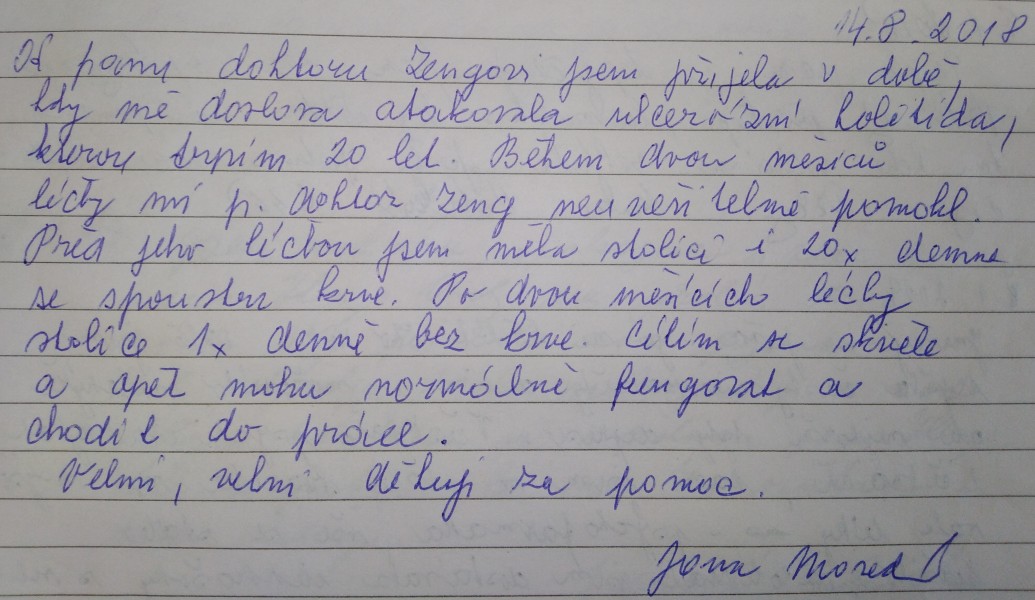 14.8.2018
K panu doktoru Zengovi jsem přijela v době,
kdy mě doslova atakovala ulcerózní kolitida,
kterou trpím 20 let. Během dvou měsíců
léčby mi p. doktor Zeng neuvěřitelně pomohl.
Před jeho léčbou jsem měla stolici i 20x denně
se spoustou krve. Po dvou měsících léčby
stolice 1x denně bez krve. Cítím se skvěle
a opět mohu normálně fungovat a
chodit do práce.
Velmi, velmi děkuji za pomoc.
Jana